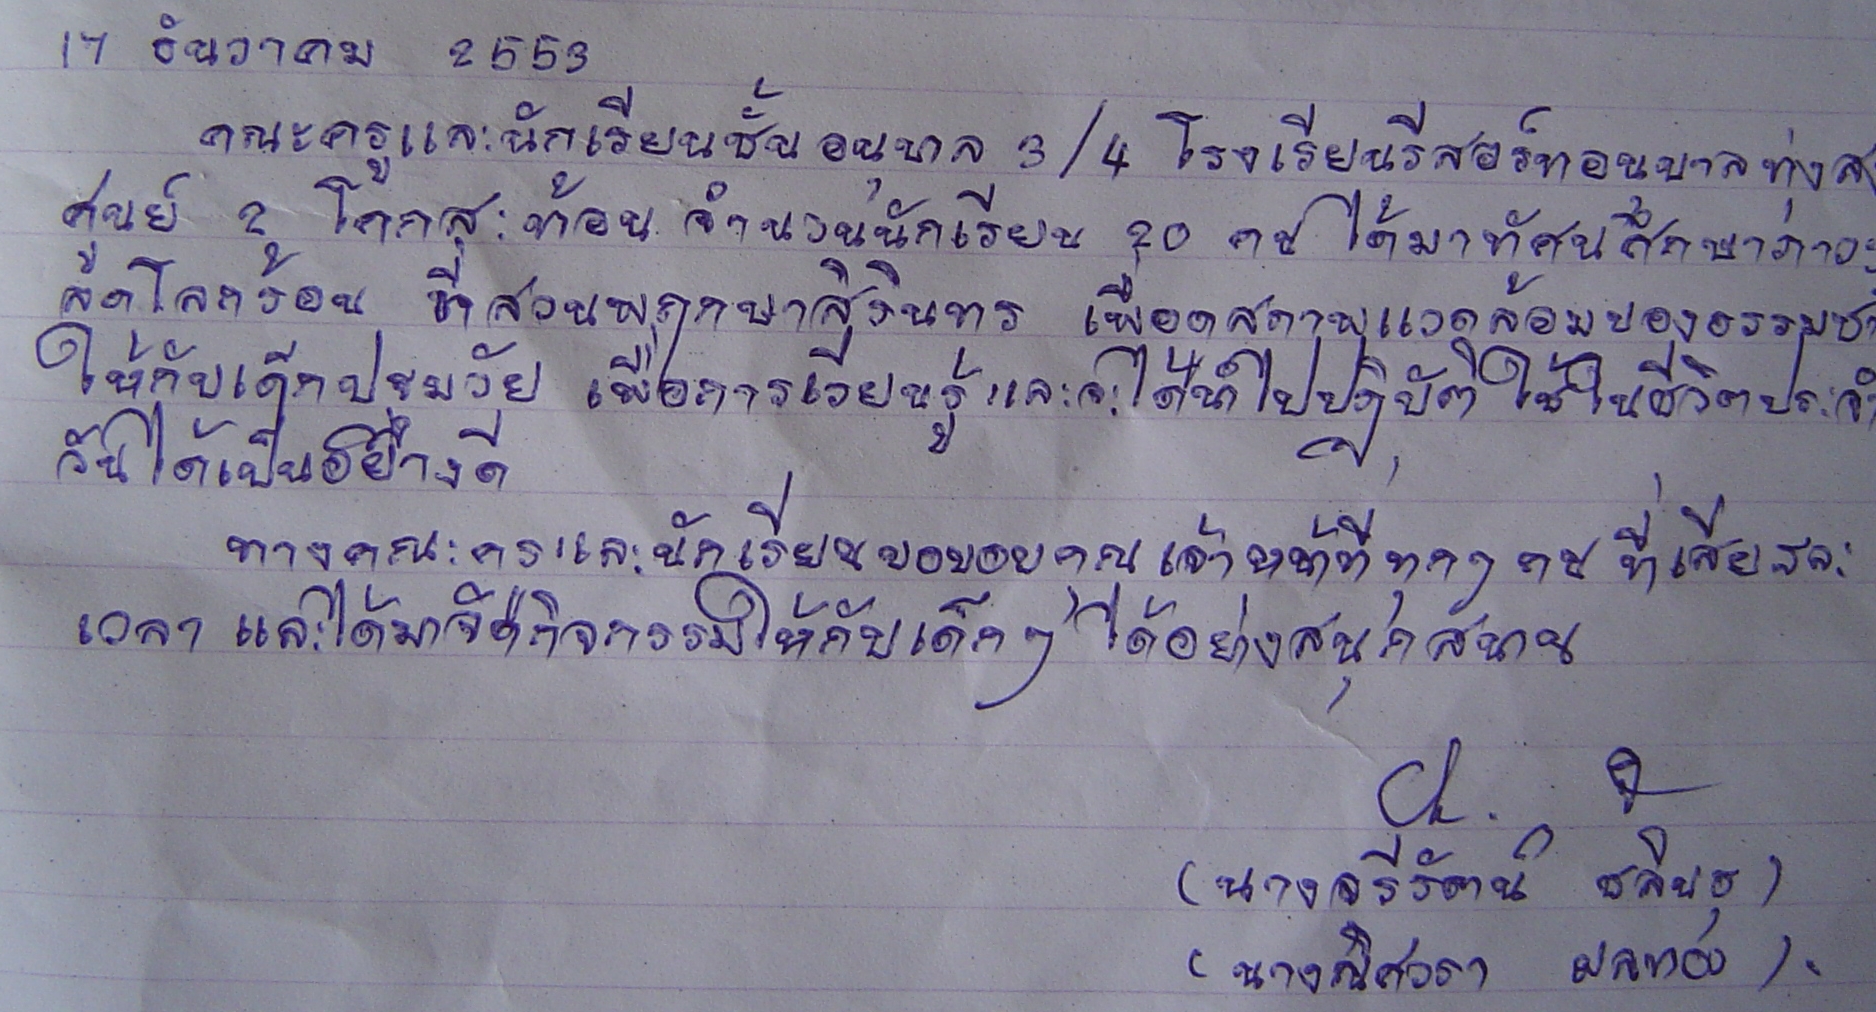 17 ธันวาคม 2553
คณะครูและนักเรียนชั้นอนุบาล 3/4 โรงเรียนรีสอร์ทอนุบาลทุ่งส
ศูนย์ 2 โคกสะท้อน จำนวนนักเรียน 20 คน ได้มาทัศนศึกษาภาวะ
ลดโลกร้อน ที่สวนพฤกษาสิรินทร เพื่อดูสภาพแวดล้อมของธรรมชา
ให้กับเด็กปฐมวัย เพื่อการเรียนรู้และจะได้นำไปปฏิบัติใช้ในชีวิตประจำ
วันได้เป็นอย่างดี
ทางคณะครูและนักเรียนขอขอบคุณเจ้าหน้าที่ทุกๆ คน ที่เสียสละ
เวลา และได้มาจัดกิจกรรมให้กับเด็กๆ ได้อย่างสนุกสนาน
(นางจุรีรัตน์ ชลินธุ)
(นางณิศวรา)